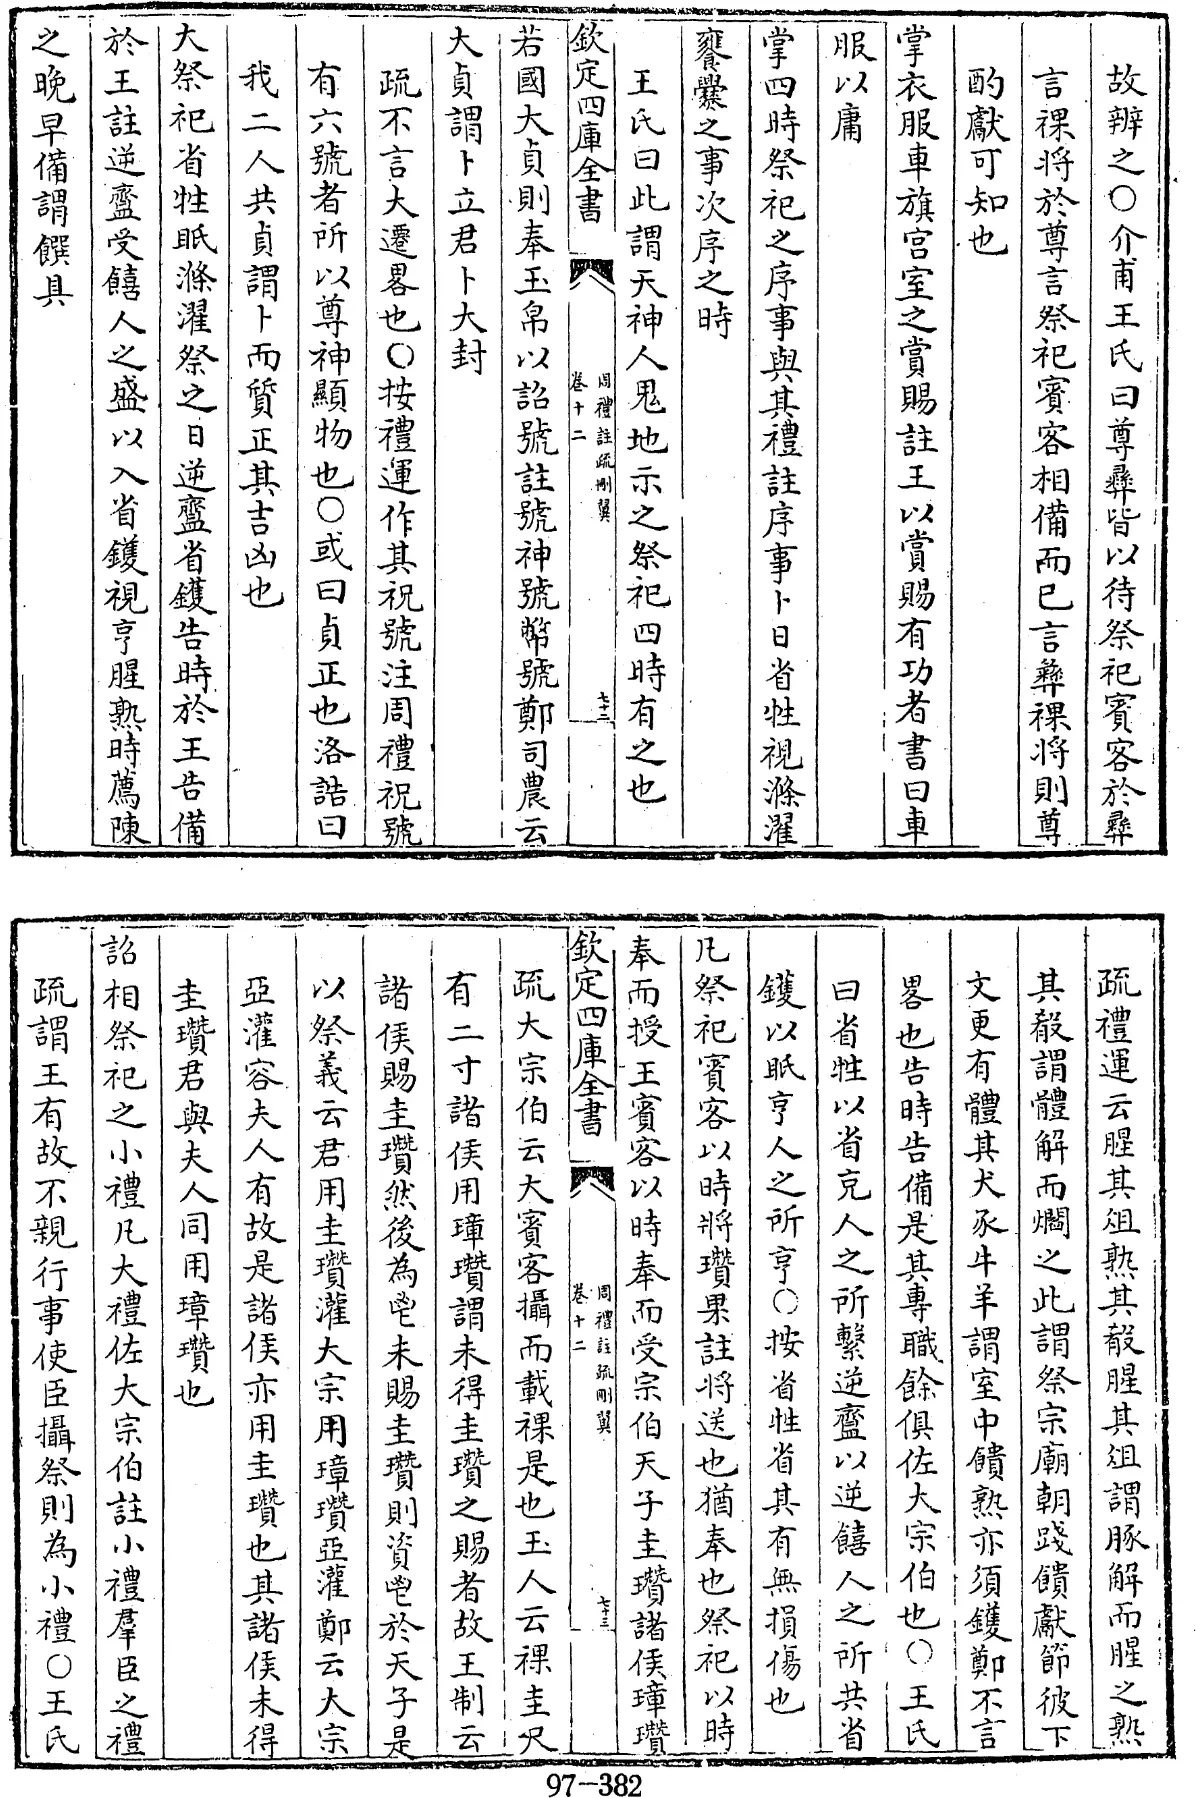 故辨之○介甫王氏曰尊彝皆以待祭祀賓客於彝
言祼將於尊言祭祀賓客相備而已言彝祼將則尊
酌獻可知也
掌衣服車旗宮室之賞賜註王以賞賜有功者書曰車
服以庸
掌四時祭祀之序事與其禮註序事卜日省牲視滌濯
饔爨之事次序之時
王氏曰此謂天神人鬼地示之祭祀四時有之也
欽定四庫全書
周禮註疏刪翼
卷十二
七十二
若國大貞則奉玉帛以詔號註號神號幣號鄭司農云
大貞謂卜立君卜大封
疏不言大遷畧也○按禮運作其祝號注周禮祝號
有六號者所以尊神顯物也○或曰貞正也洛誥曰
我二人共貞謂卜而質正其吉凶也
大祭祀省牲眂滌濯祭之日逆齍省鑊告時於王告備
於王註逆齍受饎人之盛以入省鑊視亨腥熟時薦陳
之晚早備謂饌具
疏禮運云腥其俎熟其殽腥其俎謂豚解而腥之熟
其殽謂體解而爓之此謂祭宗廟朝踐饋獻節彼下
文更有體其犬豕牛羊謂室中饋熟亦須鑊鄭不言
畧也告時告備是其專職餘俱佐大宗伯也○王氏
曰省牲以省充人之所繫逆齍以逆饎人之所共省
鑊以眂亨人之所亨○按省牲省其有無損傷也
凡祭祀賓客以時將瓚果註將送也猶奉也祭祀以時
奉而授王賓客以時奉而受宗伯天子圭瓚諸侯璋瓚
欽定四庫全書
周禮註疏刪翼
卷十二
七十三
疏大宗伯云大賓客攝而載祼是也玉人云祼圭尺
有二寸諸侯用璋瓚謂未得圭瓚之賜者故王制云
諸侯賜圭瓚然後為鬯未賜圭瓚則資鬯於天子是
以祭義云君用圭瓚灌大宗用璋瓚亞灌鄭云大宗
亞灌容夫人有故是諸侯亦用圭瓚也其諸侯未得
圭瓚君與夫人同用璋瓚也
詔相祭祀之小禮凡大禮佐大宗伯註小禮羣臣之禮
疏謂王有故不親行事使臣攝祭則為小禮○王氏
97-382